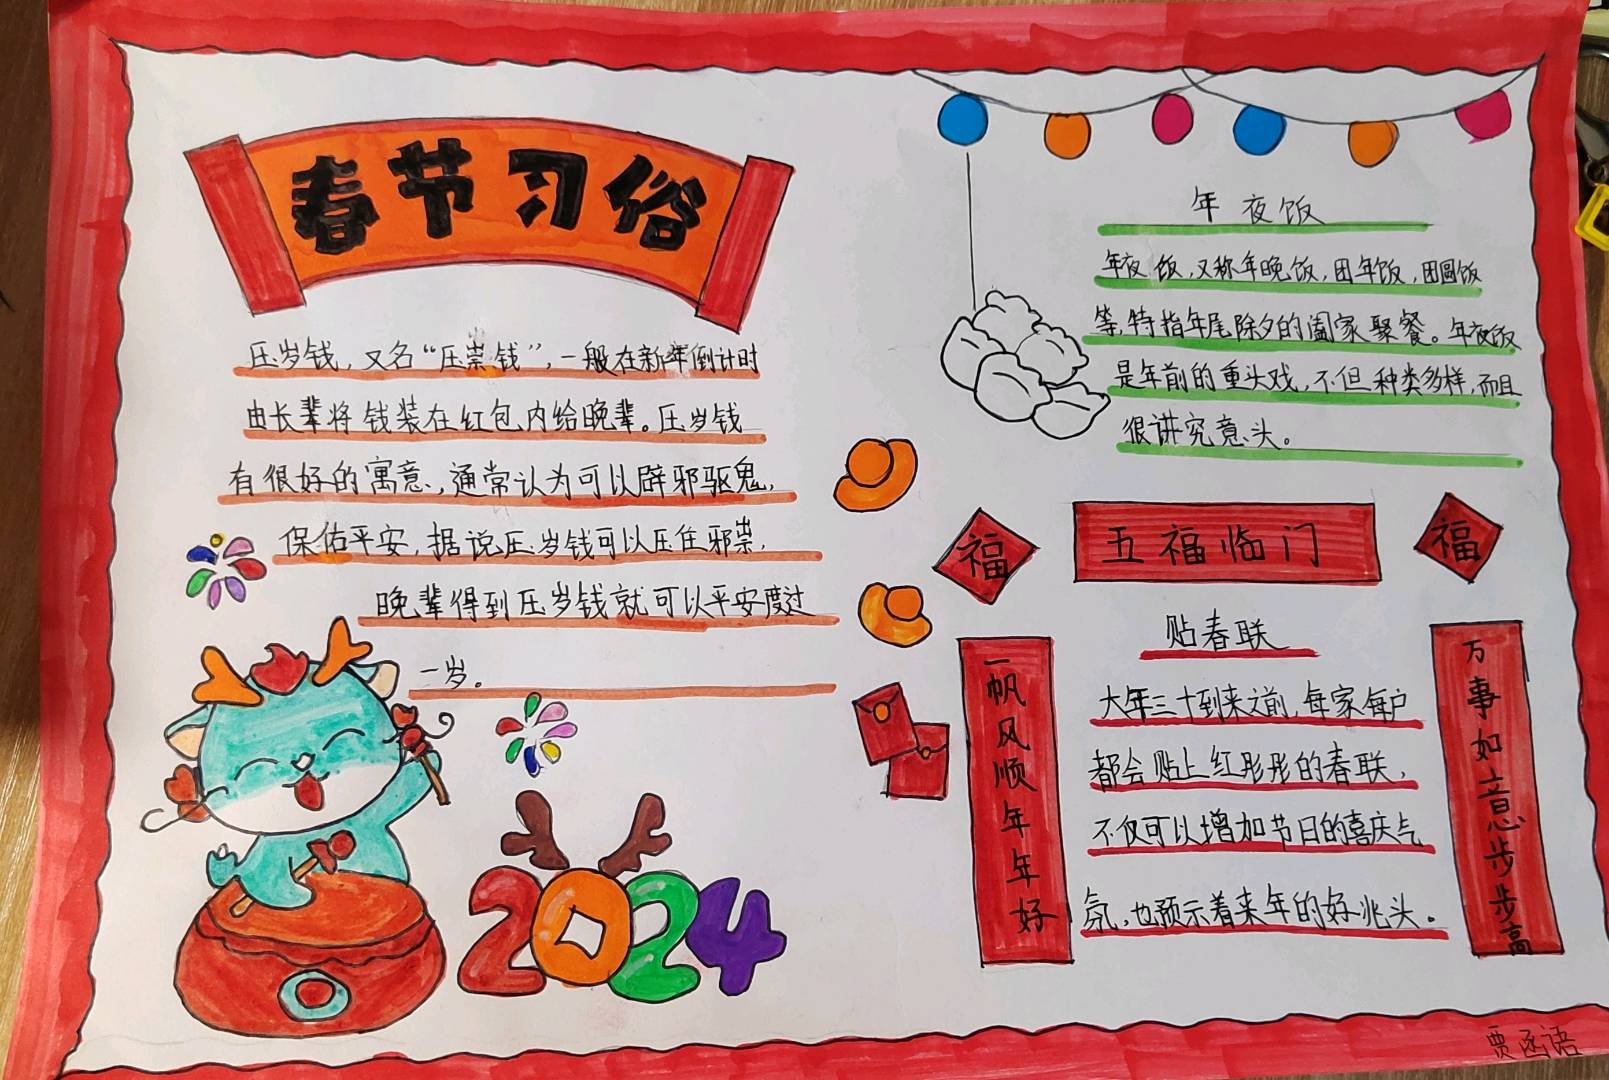 春节习俗
压岁钱，又名“压祟钱”，一般在新年倒计时
由长辈将钱装在红包内给晚辈。压岁钱
有很好的寓意，通常认为可以辟邪驱鬼，
保佑平安，据说压岁钱可以压住邪祟，
晚辈得到压岁钱就可以平安度过
一岁。
2024
年夜饭
年夜饭，又称年晚饭，团年饭，团圆饭
等，特指年尾除夕的阖家聚餐。年夜饭
是年前的重头戏，不但种类多样，而且
很讲究意头。
福
五福临门
福
一帆风顺年年好
贴春联
大年三十到来之前，每家每户
都会贴上红彤彤的春联，
不仅可以增加节日的喜庆气
氛，也预示着来年的好兆头。
万事如意步步高
贾函语